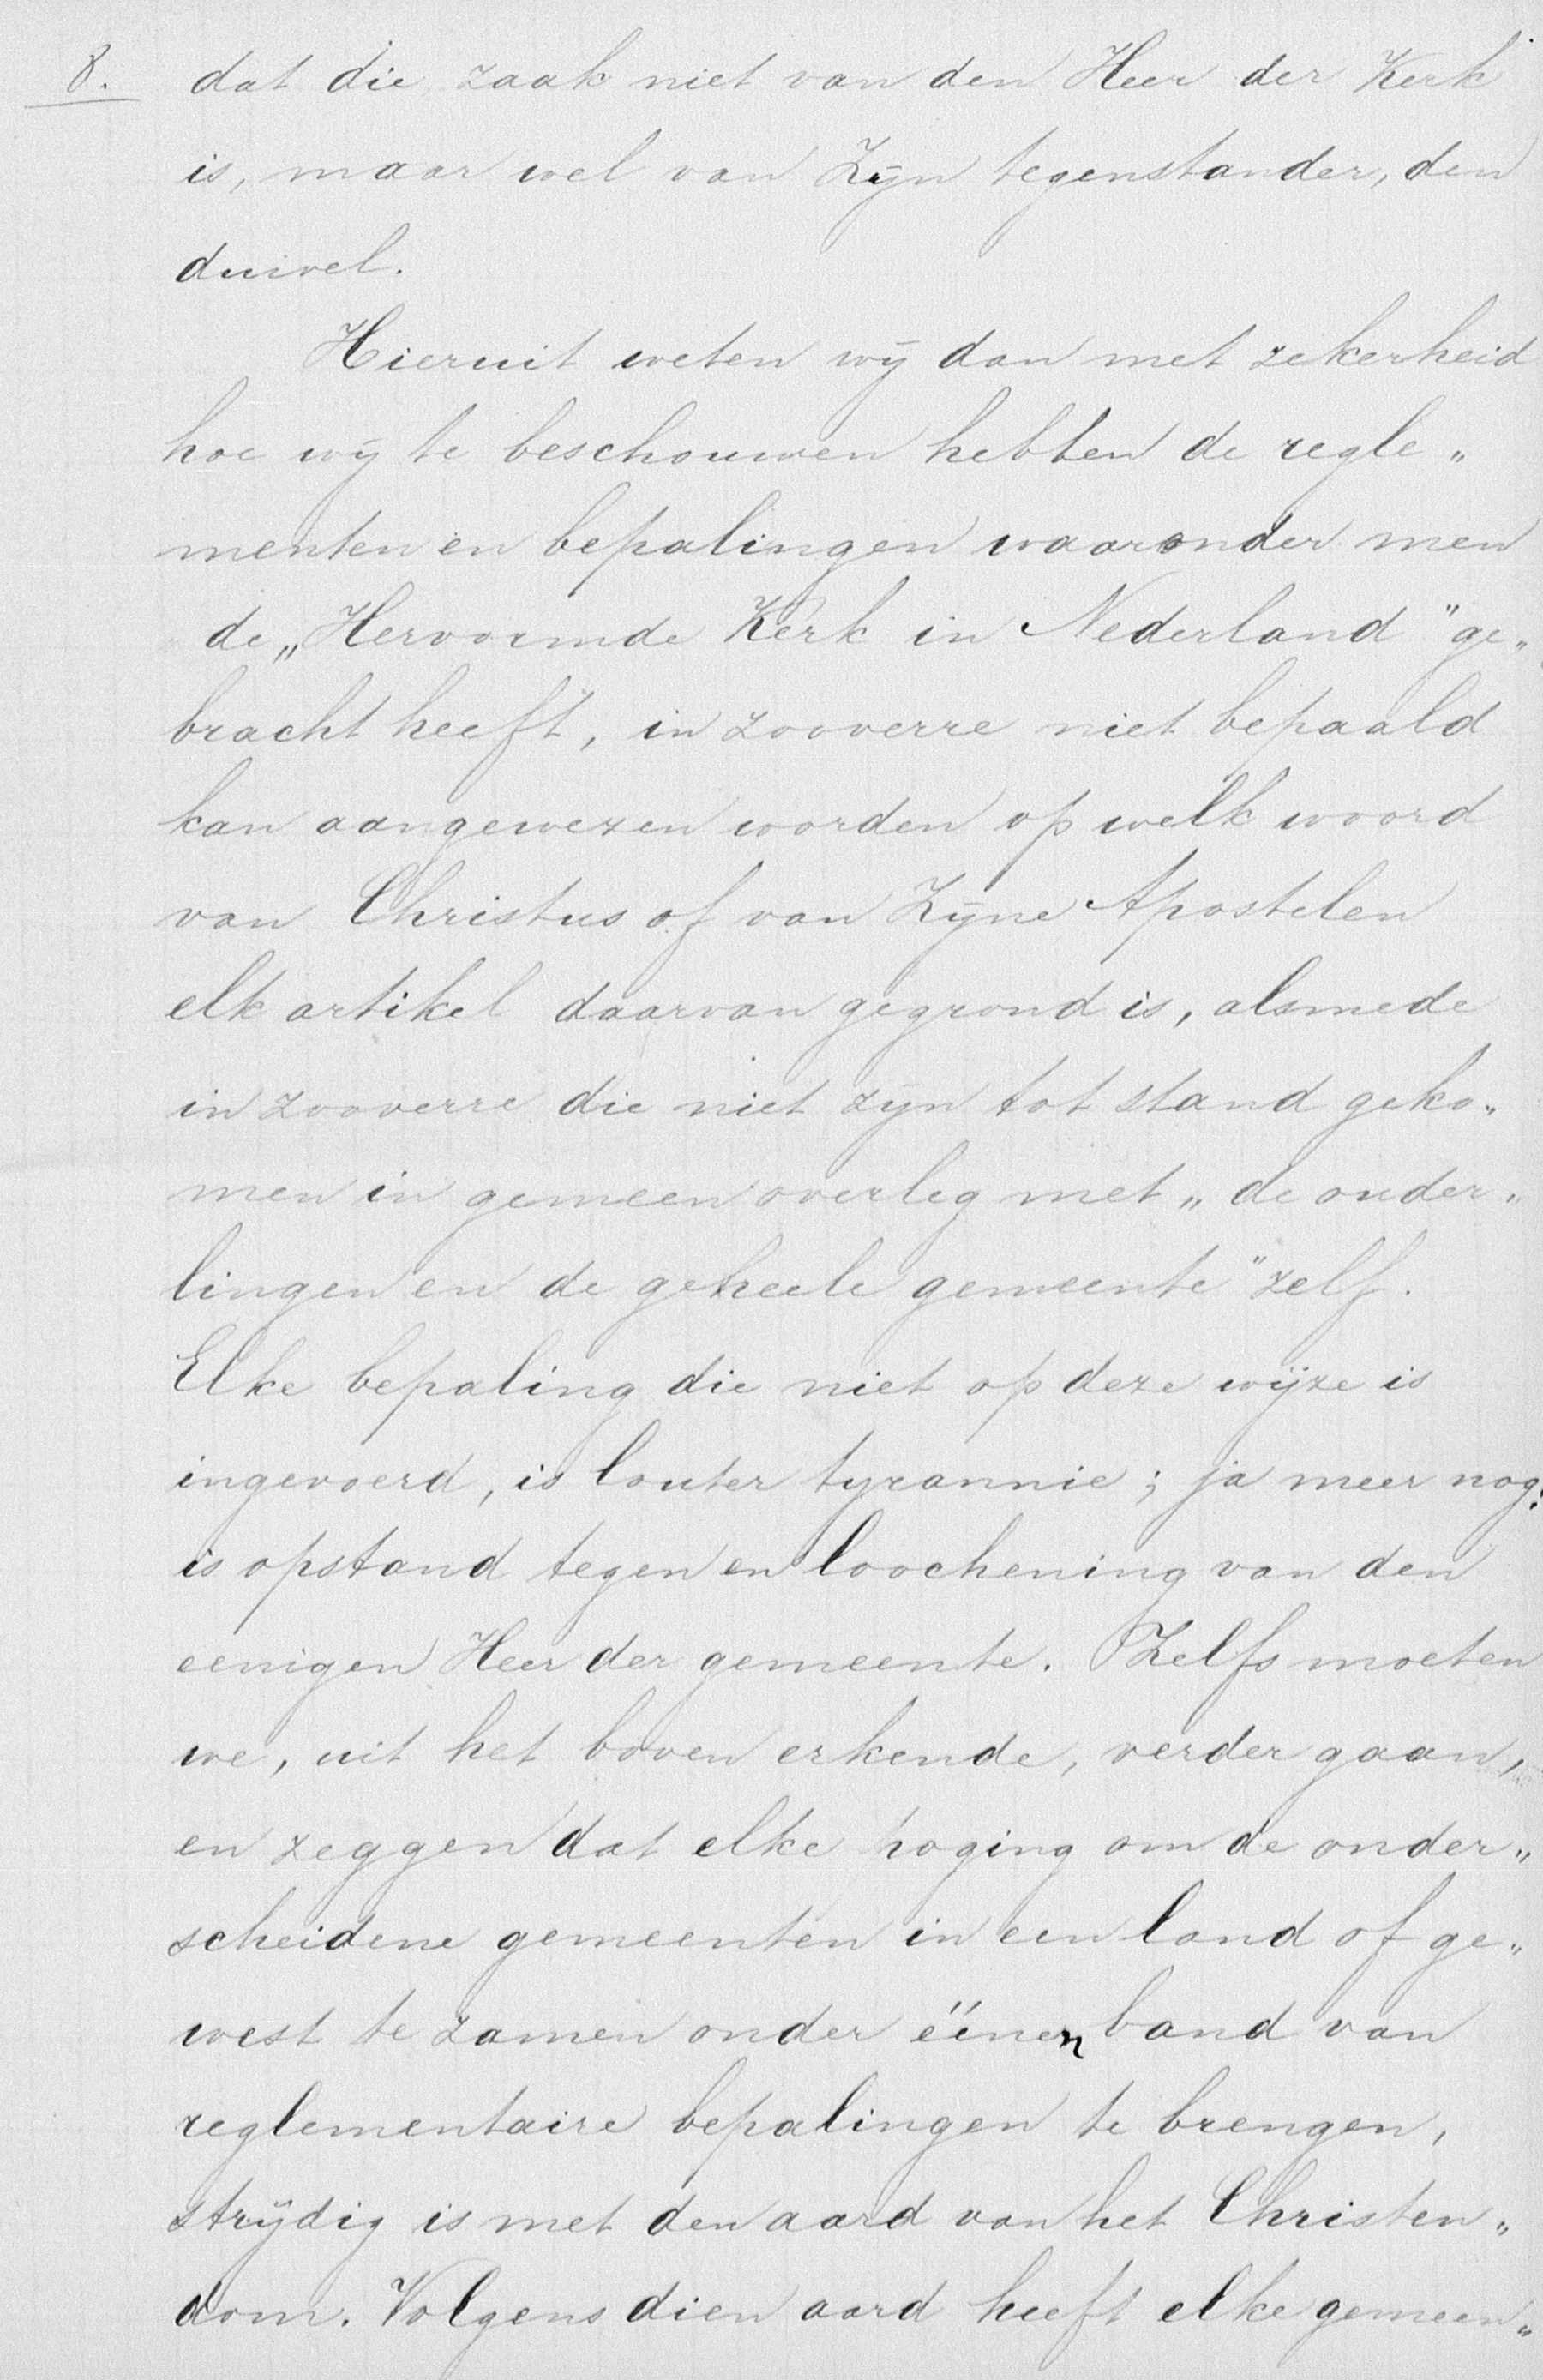 8. dat die zaak niet van den Heer der Kerk
is, maar wel van Zijn tegenstander, den
duivel.
Hieruit weten wij dan met zekerheid
hoe wij te beschouwen hebben de regle„
menten en bepalingen waaronder men
de „Hervormde Kerk in Nederland" ge„
bracht heeft, in zooverre niet bepaald
kan aangewezen worden op welk woord
van Christus of van Zijne Apostelen
elk artikel daarvan gegrond is, alsmede
in zooverre die niet zijn tot stand geko„
men in gemeen overleg met „de ouder„
lingen en de geheele gemeente" zelf.
Elke bepaling die niet op deze wijze is
ingevoerd, is louter tyrannie; ja meer nog:
is opstand tegen en loochening van den
eenigen Heer der gemeente. Zelfs moeten
we, uit het boven erkende, verder gaan,
en zeggen dat elke poging om de onder„
scheidene gemeenten in een land of ge„
west te zamen onder éénen band van
reglementaire bepalingen te brengen,
strijdig is met den aard van het Christen„
dom. Volgens dien aard heeft elke gemeen„